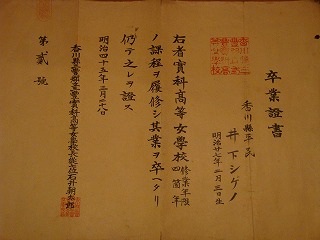 卒業證書
香川縣平民
井下シゲノ
明治廿七年二月三日生
右者實科高等女學校修業年限四箇年
ノ課程ヲ履修シ其業ヲ卒ヘタリ
仍テ之レヲ證ス
明治四十五年三月二十八日
香川縣
實科高等女學校長
石井
第貳號